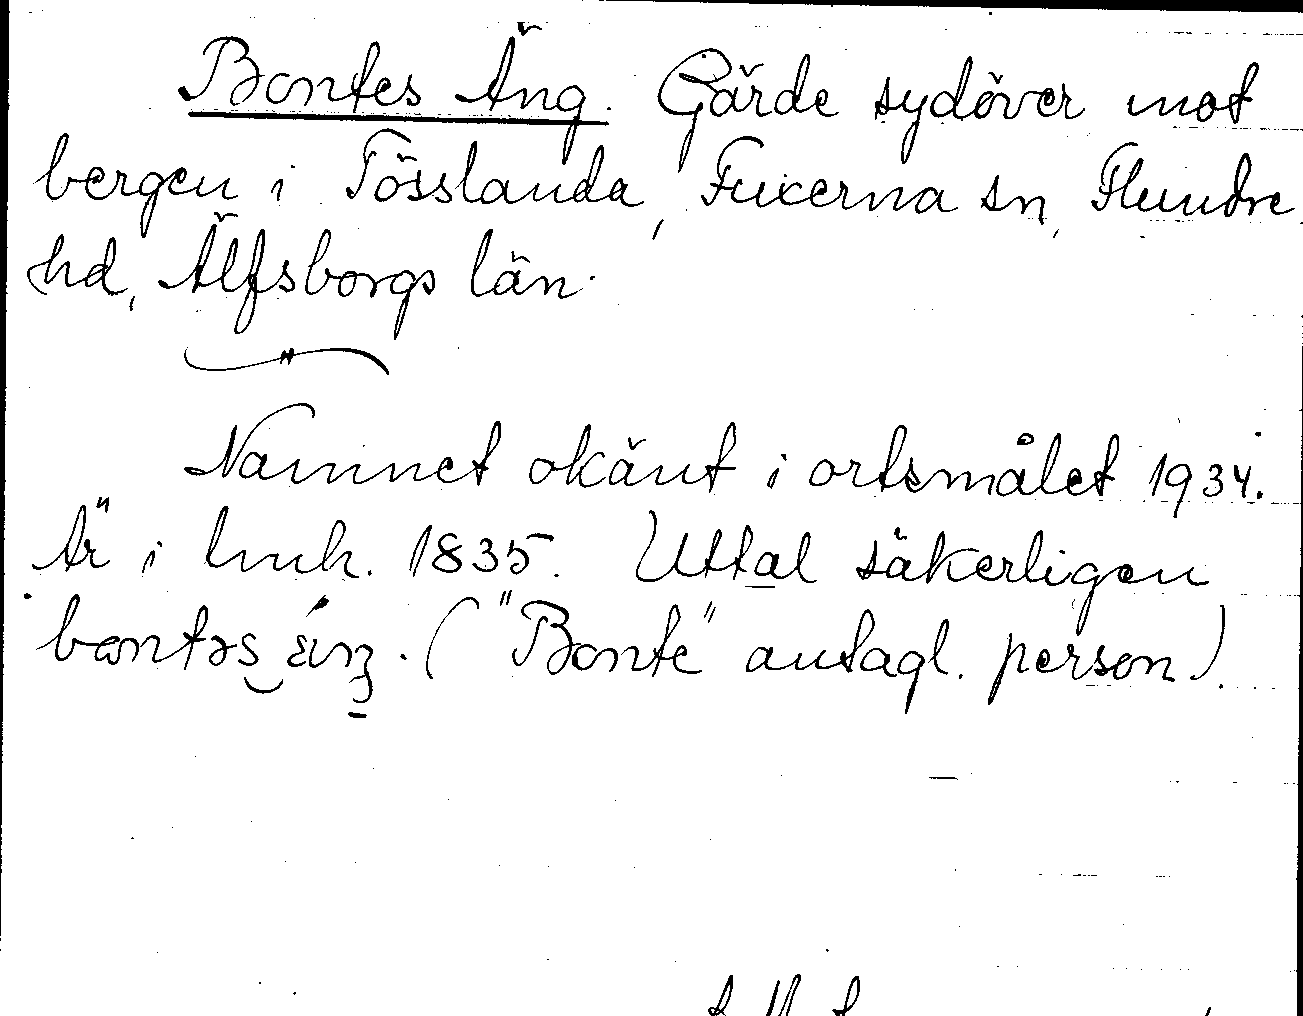 Bontes Äng. Gärde sydöver mot
bergen i Tösslanda, Fuxerna sn, Flundre
hd, Älfsborgs län.
Namnet okänt i ortsmålet 1934.
Är i lmh. 1835. Uttal säkerligen
("Bonte" antagl. person).